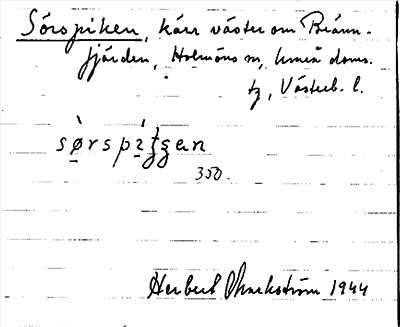 Sörspiken, kärr väster om Bränn-
fjärden, Holmöns sn, Umeå doms.
tg, Västerb. l.
sørspitgan
350.
Herbert 1944